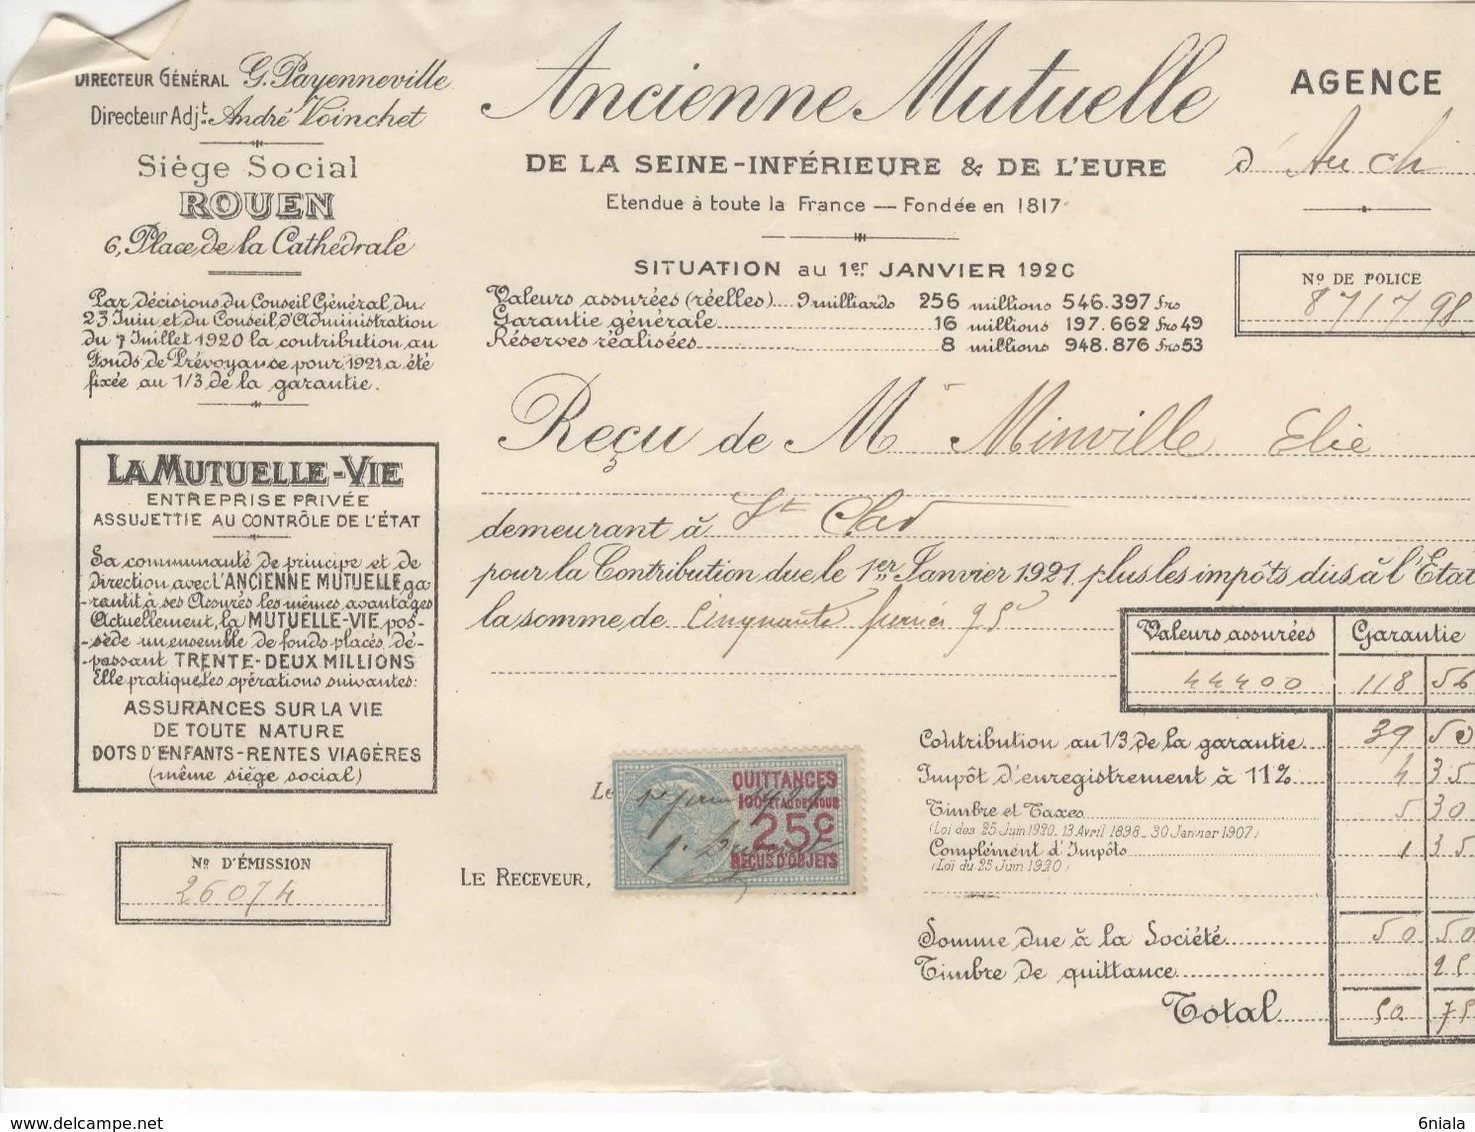 DIRECTEUR GÉNÉRAL G. Payenneville
Directeur Adj.t André Voinchet
Siège Social
ROUEN
6, Place de la Cathédrale
Par décisions du Conseil Général du
23 Juin et du Conseil d'Administration
du 7 Juillet 1920 la contribution au
Fonds de Prévoyance pour 1921 a été
fixée au 1/3 de la garantie.
LA MUTUELLE-VIE
ENTREPRISE PRIVÉE
ASSUJETTIE AU CONTRÔLE DE L'ÉTAT
Sa communauté de principe et de
direction avec L'ANCIENNE MUTUELLE ga-
-rantit à ses Assurés les mêmes avantages
Actuellement, la MUTUELLE-VIE pos-
-sède un ensemble de fonds placés, dé-
-passant TRENTE-DEUX MILLIONS
Elle pratique les opérations suivantes:
ASSURANCES SUR LA VIE
DE TOUTE NATURE
DOTS D'ENFANTS-RENTES VIAGÈRES
(même siège social)
No D'ÉMISSION
26074
Ancienne Mutuelle
DE LA SEINE-INFÉRIEURE & DE L'EURE
Etendue à toute la France — Fondée en 1817
SITUATION au 1er JANVIER 1920
Valeurs assurées (réelles) 9 milliards 256 millions 546.397 frs
Garantie générale 16 millions 197.662 frs 49
Réserves réalisées 8 millions 948.876 frs 53
AGENCE
d'Auch
No DE POLICE
871798
Reçu de Mr Minville Elie
demeurant à St Clar
pour la Contribution due le 1er Janvier 1921, plus les impôts dus à l'Etat
la somme de Cinquante francs 75c
Valeurs assurées Garantie
44400 118 56
Contribution au 1/3 de la garantie 39 50
Impôt d'enregistrement à 11% 4 35
Timbre et Taxes 5 30
(Loi des 25 Juin 1920_13 Avril 1898_30 Janvier 1907)
Complément d'Impôts 1 35
(Loi du 25 Juin 1920)
Somme due à la Société 50 50
Timbre de quittance 25
Total 50 75
Le
QUITTANCES
100F ET AU DESSOUS
25c
REÇUS D'OBJETS
LE RECEVEUR,
6niala